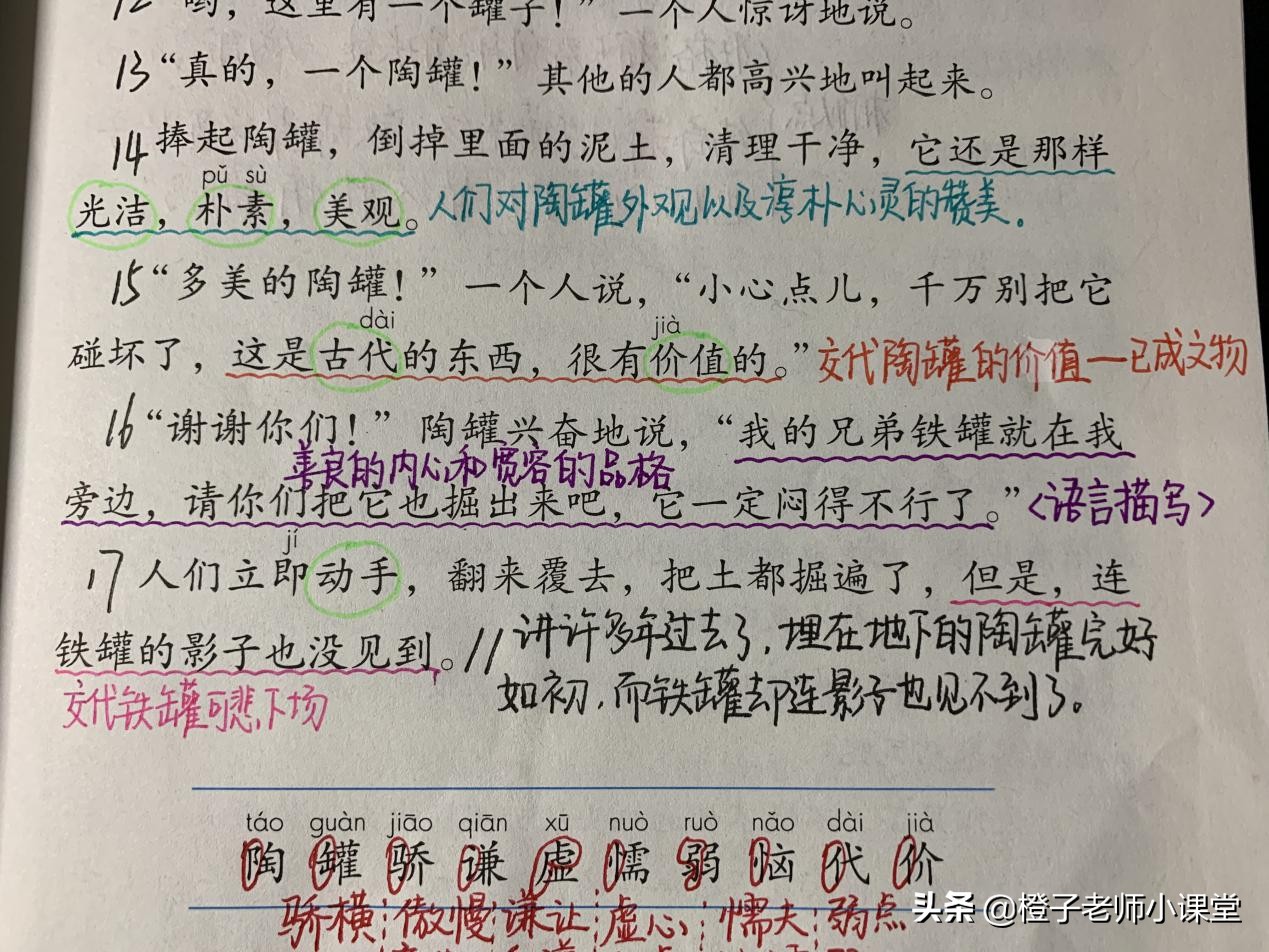 12“哟，这里有一个罐子！”一个人惊讶地说。
13“真的，一个陶罐！”其他的人都高兴地叫起来。
14捧起陶罐，倒掉里面的泥土，清理干净，它还是那样
pǔ sù
光洁，朴素，美观。人们对陶罐外观以及淳朴心灵的赞美.
15“多美的陶罐！”一个人说，“小心点儿，千万别把它
dài jià
碰坏了，这是古代的东西，很有价值的。”交代陶罐的价值—已成文物
16“谢谢你们！”陶罐兴奋地说，“我的兄弟铁罐就在我
善良的内心和宽容的品格
旁边，请你们把它也掘出来吧，它一定闷得不行了。”<语言描写>
jí
17人们立即动手，翻来覆去，把土都掘遍了，但是，连
铁罐的影子也没见到。//讲许多年过去了，埋在地下的陶罐完好
交代铁罐可悲下场 如初，而铁罐却连影子也见不到了。
táo guàn jiāo qiān xū nuò ruò nǎo dài jià
陶 罐 骄 谦 虚 懦 弱 恼 代 价
骄横 傲慢 谦让 虚心 懦夫 弱点
头条 @橙子老师小课堂